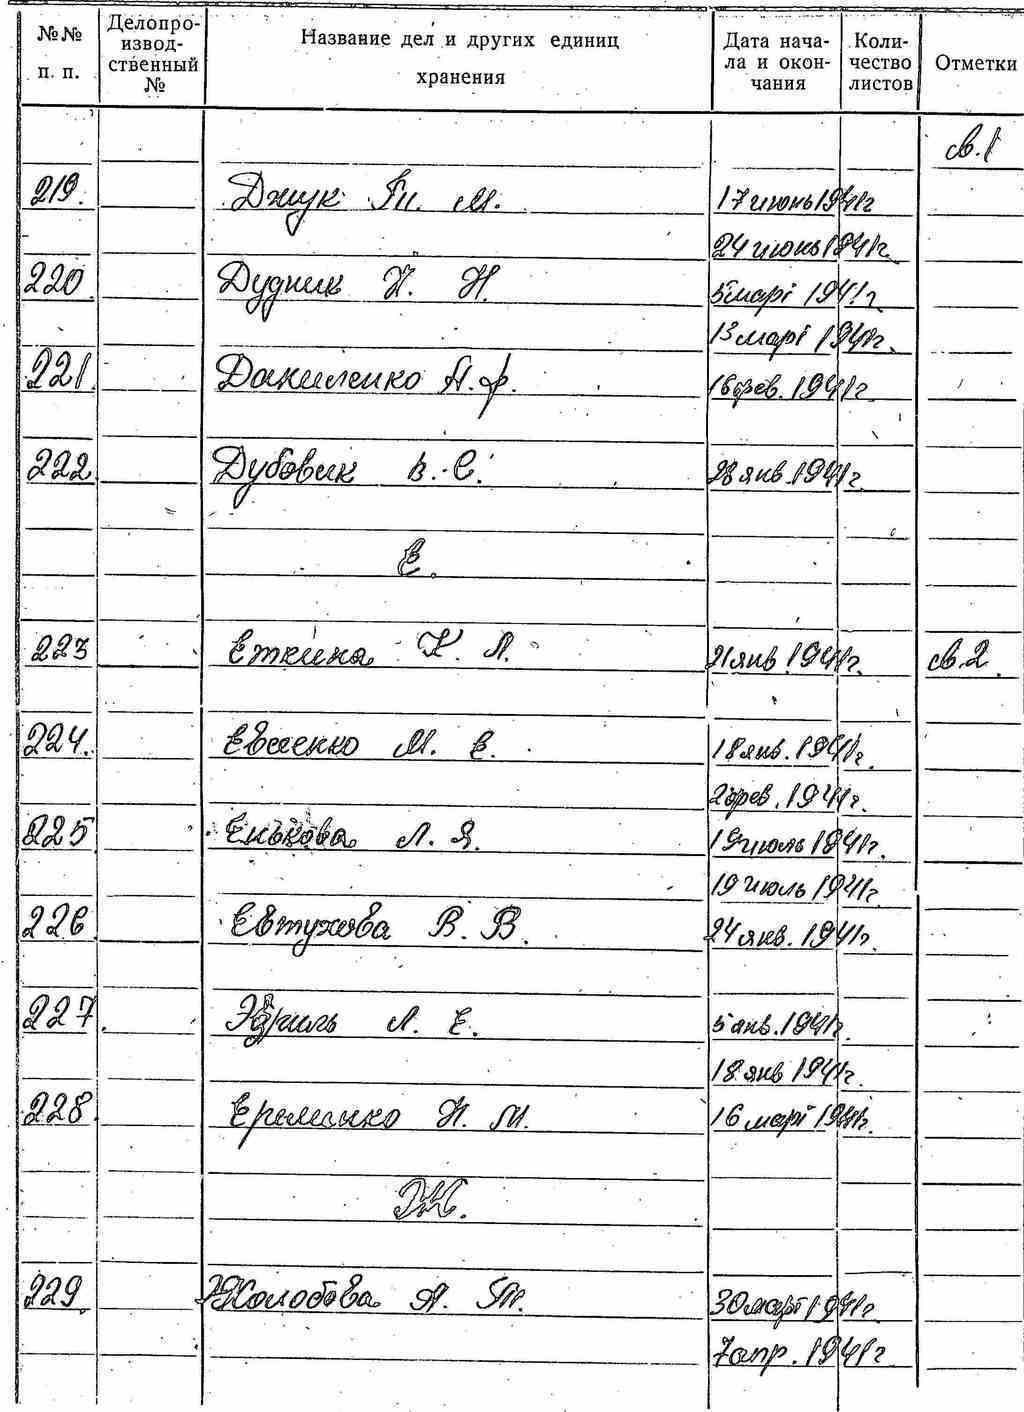 №№ п. п. Делопроизводственный № Название дел и других единиц хранения Дата начала и окончания Количество листов Отметки
св. 1
219. Джук М. 17 июнь 1941г
24 июнь 1941г.
220. Дудник Н. Н. 5 март 1941г.
13 март 1941г.
221. Даниленко А. Ф. 16 фев. 1941г.
222. Дубовик В. С. 23 янв. 1941г.
Е.
223 Еткина К. Л. 21 янв. 1941г. св. 2.
224. Евсеенко М. Е. 18 янв. 1941г.
2 фев. 1941г.
225 Енькова Л. Я. 19 июль 1941г.
19 июль 1941г.
226 Евтухова В. В. 24 янв. 1941г.
227. Л. Е. 5 янв. 1941г.
18 янв 1941г.
228. Еременко Н. М. 16 март 1941г.
Ж.
229. Жолобова А. Т. 30 март 1941г.
7 апр. 1941г.